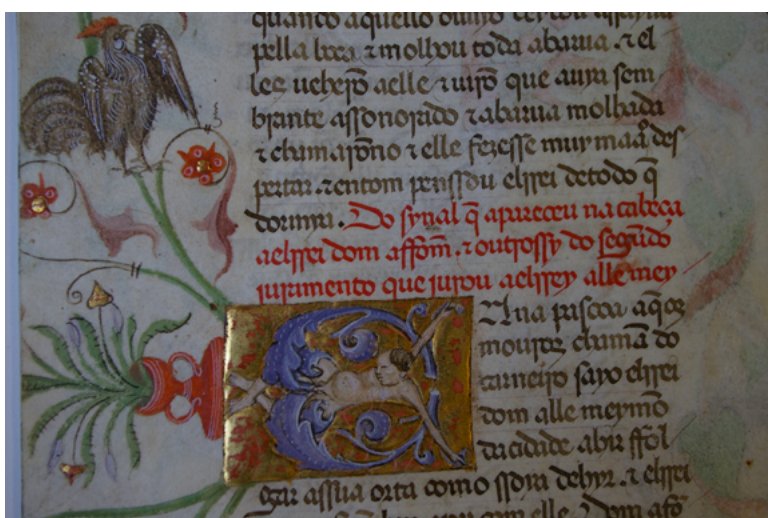 pella boca ⁊ molhou toda abarua . ⁊ el
les ueherõ aelle ⁊ uirõ que auya sem
brante assonorado ⁊ abarua molhada
⁊ chamarõno ⁊ elle fezesse muy maao des
pertar ⁊ entom penssou elrrei detodo q̃
dormya . Do synal q̃ apareceu nacabeça
aelrrei dom affom̃ . ⁊ outrossy do segũdo
iuramento que iurou aelrrey alle mey
Una pascoa aq̃ os
mouros chamã do
carneiro sayo elrrei
dom alle meymõ
dacidade abir ffol
gar assua orta como ssoya debyr . ⁊ elrrei